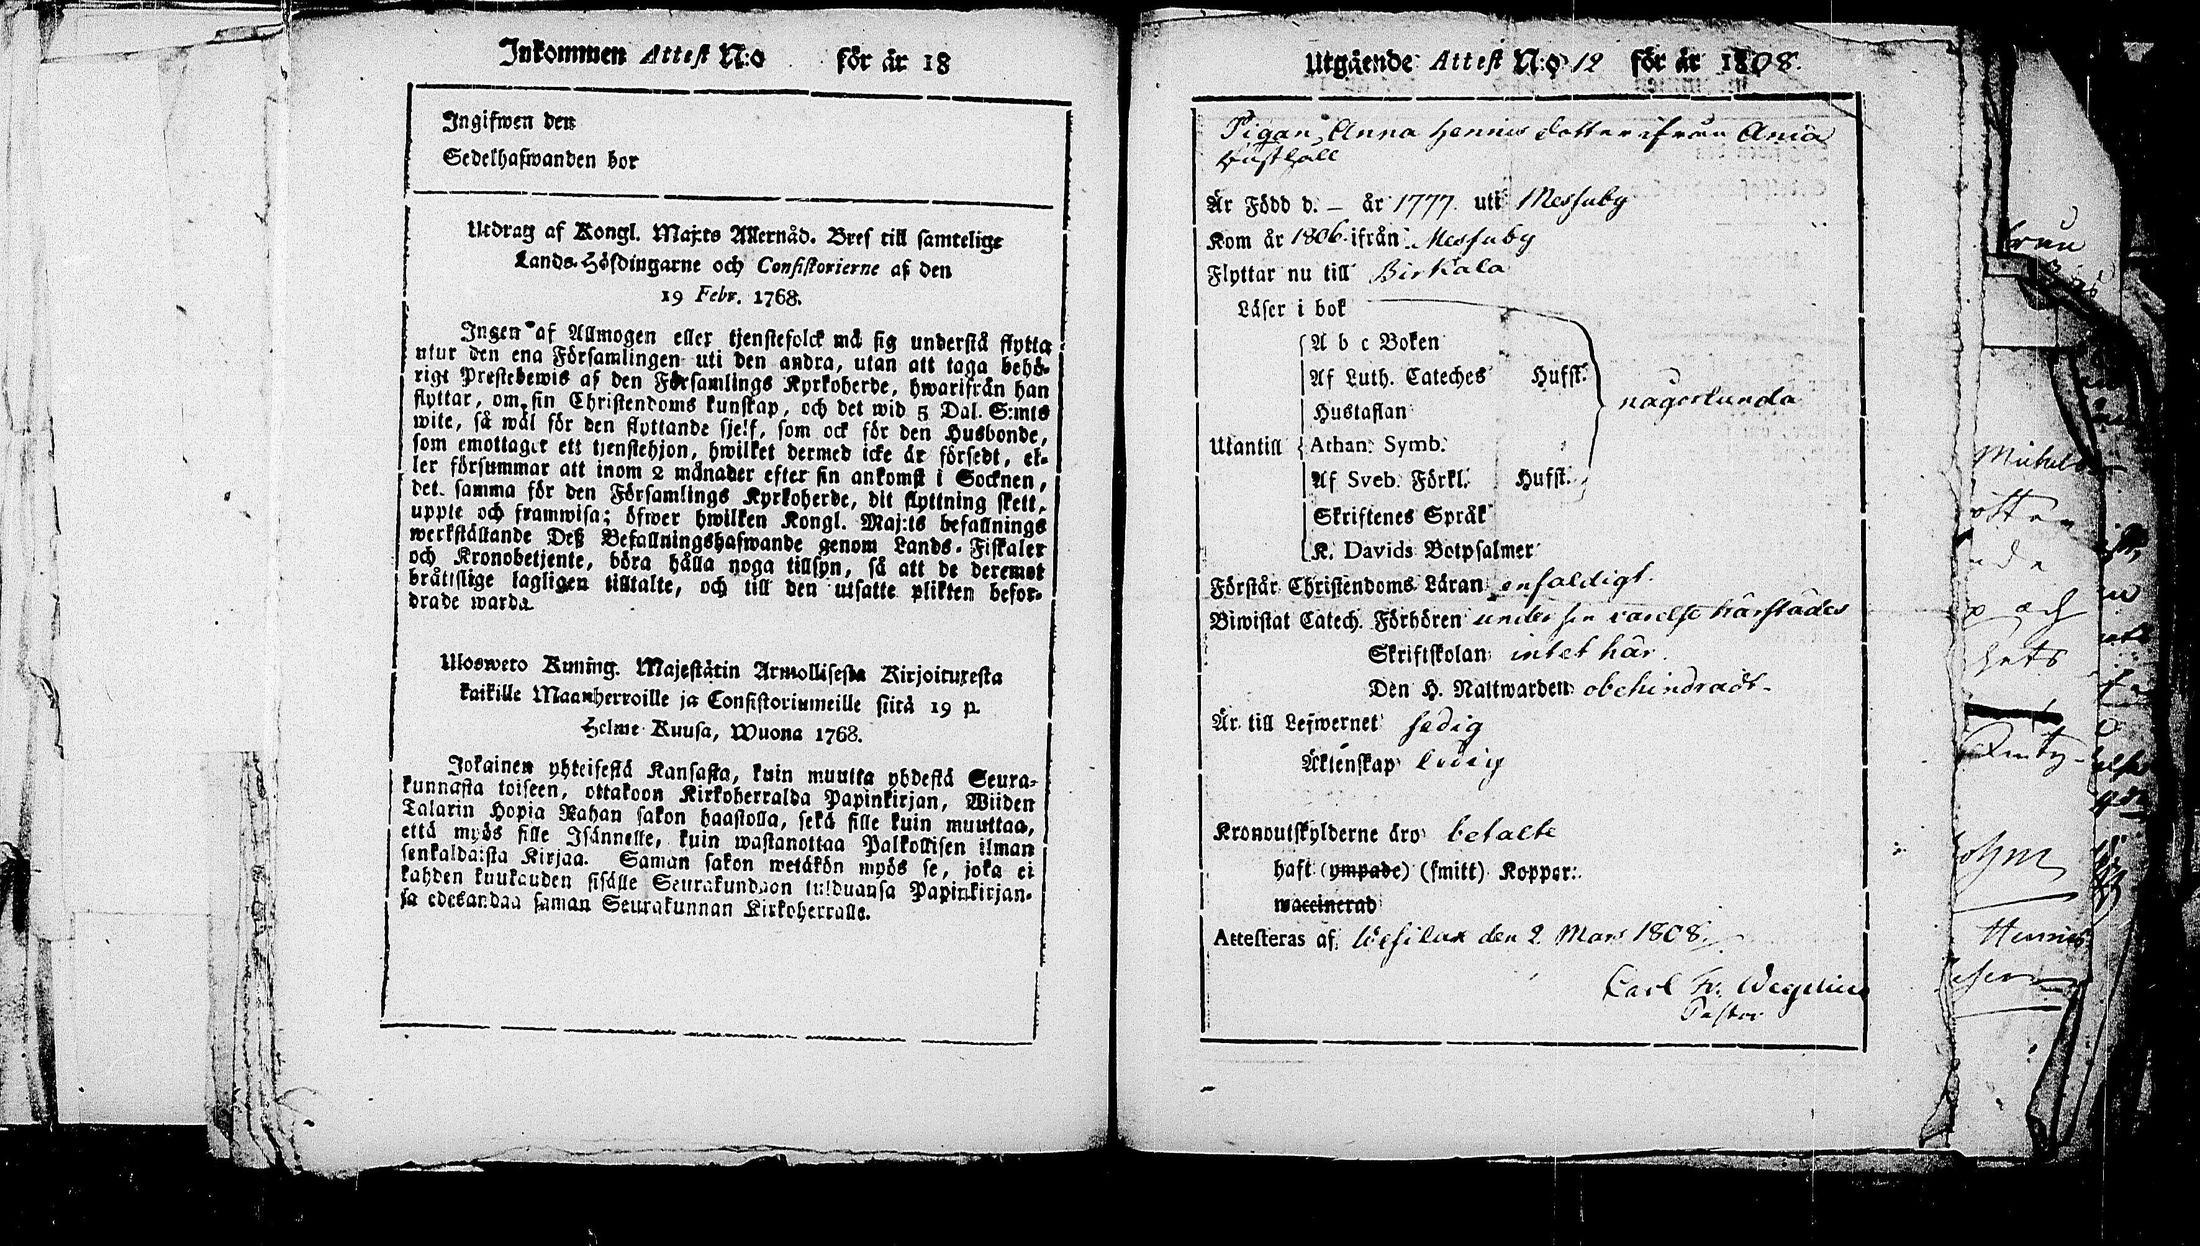 Inkommen Attest N:o för år 18
Ingifwen den
Sedelhafwanden bor
Utdrag af Kongl. Maj:ts Allernåd. Bref till samtelige
Lands-Höfdingarne och Consistorierne af den
19 Febr. 1768.
Ingen af Allmogen eller tjenstefolck må sig understå flytta
utur den ena Församlingen uti den andra, utan att taga behö-
rigt Prestebewis af den Församlings Kyrkoherde, hwarifrån han
flyttar, om sin Christendoms kunskap, och det wid 5 Dal. S:mts
wite, så wäl för den flyttande sjelf, som ock för den Husbonde,
som emottager ett tjenstehjon, hwilket dermed icke är försedt, el-
ler försummar att inom 2 månader efter sin ankomst i Socknen,
det samma för den Församlings Kyrkoherde, dit flyttning skett,
uppte och framwisa; öfwer hwilken Kongl. Maj:ts befallnings
werkställande Deß Befallningshafwande genom Lands-Fiskaler
och Kronobetjente, böra hålla noga tillsyn, så att de deremot
bråttslige lagligen tilltalte, och till den utsatte plikten befor-
drade warda.
Ulosweto Kuning. Majestätin Armollisesta Kirjoituxesta
kaikille Maanherroille ja Consistoriumeille siitä 19 p.
Helme Kuusa, Wuona 1768.
Jokainen yhteisestä Kansasta, kuin muutta yhdestä Seura-
kunnasta toiseen, ottakoon Kirkoherralda Papinkirjan, Wiiden
Talarin Hopia Rahan sakon haastolla, sekä sille kuin muuttaa,
että myös sille Isännelle, kuin wastanottaa Palkollisen ilman
senkaldaista Kirjaa. Saman sakon wetäkön myös se, joka ei
kahden kuukauden sisälle Seurakundaon tulduansa Papinkirjan-
sa edesandaa saman Seurakunnan Kirkoherralle.
Utgående Attest N:o 12 för år 1808.
Pigan Anna Hennics dotter ifrån Ania
Är Född d. — år 1777. uti Messuby
Kom år 1806. ifrån Messuby
Flyttar nu till Birkala
Läser i bok
A b c Boken
Af Luth. Cateches Hufst.
Hustaflan
någorlunda
Utantill Athan. Symb.
Af Sveb. Förkl. Hufst.
Skriftenes Språk
K. Davids Botpsalmer
Förstår Christendoms Läran enfaldigt.
Biwistat Catech. Förhören under sin varelse härstädes
Skriftskolan intet här.
Den H. Nattwarden obehindradt.
Är till Lefwernet sedig
Äktenskap ledig
Kronoutskylderne äro betalte
haft (ympade) (smitt) Koppor:
waccinerad
Attesteras af Wesilax den 2 Mars 1808.
Carl Fr. Wegelius
Pastor